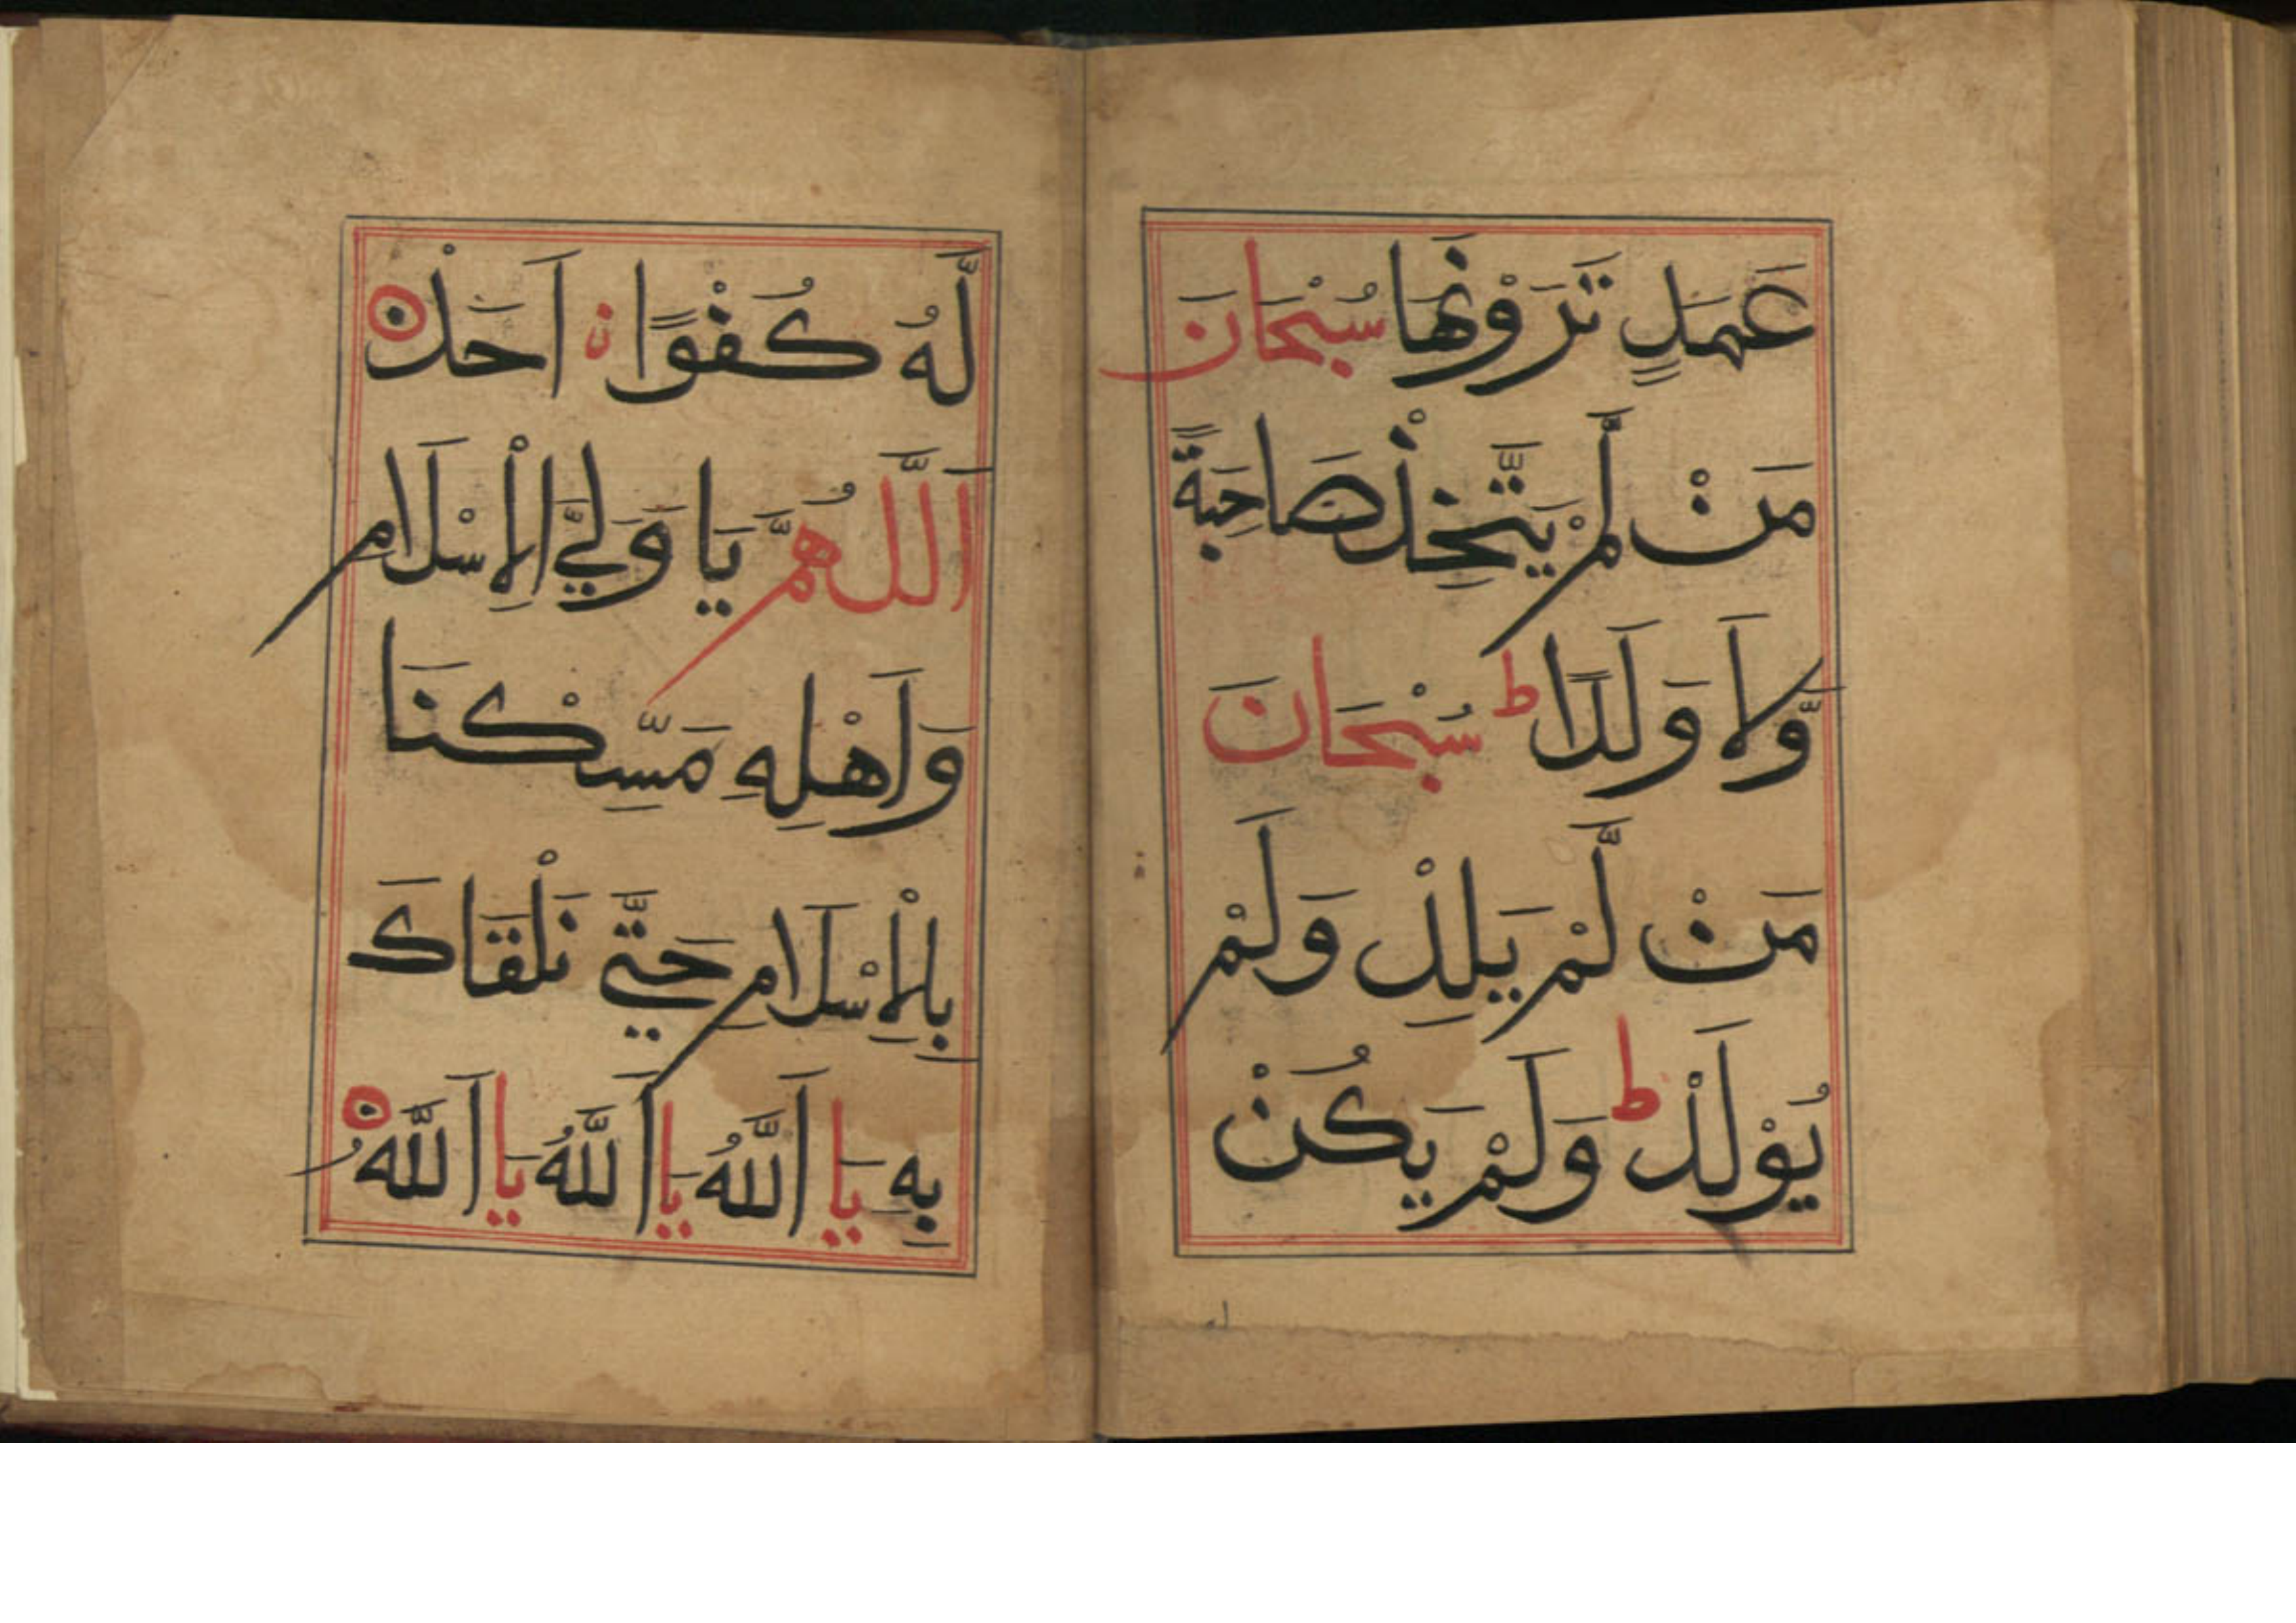 عَمَدٍ تَرَوْنَهَا سُبْحَانَ
مَنْ لَّمْ يَتَّخِذْ صَاحِبَةً
وَّلَا وَلَدًا ط سُبْحَانَ
مَنْ لَّمْ يَلِدْ وَلَمْ
يُوْلَدْ ط وَلَمْ يَكُنْ
لَّهُ كُفُوًا نِ اَحَدْ ه
اَللّٰهُمَّ يَا وَلِيَّ الْاِسْلَامِ
وَاَهْلِهِ مَسِّكْنَا
بِالْاِسْلَامِ حَتّٰي نَلْقَاكَ
بِهِ يَا اَللّٰهُ يَا اَللّٰهُ يَا اَللّٰهُ ه